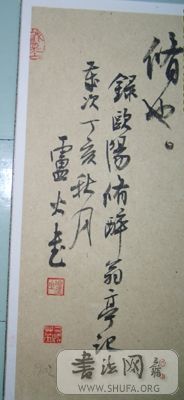 脩也。
錄歐陽脩醉翁亭記
歲次丁亥秋月
書法网
WWW.SHUFA.ORG